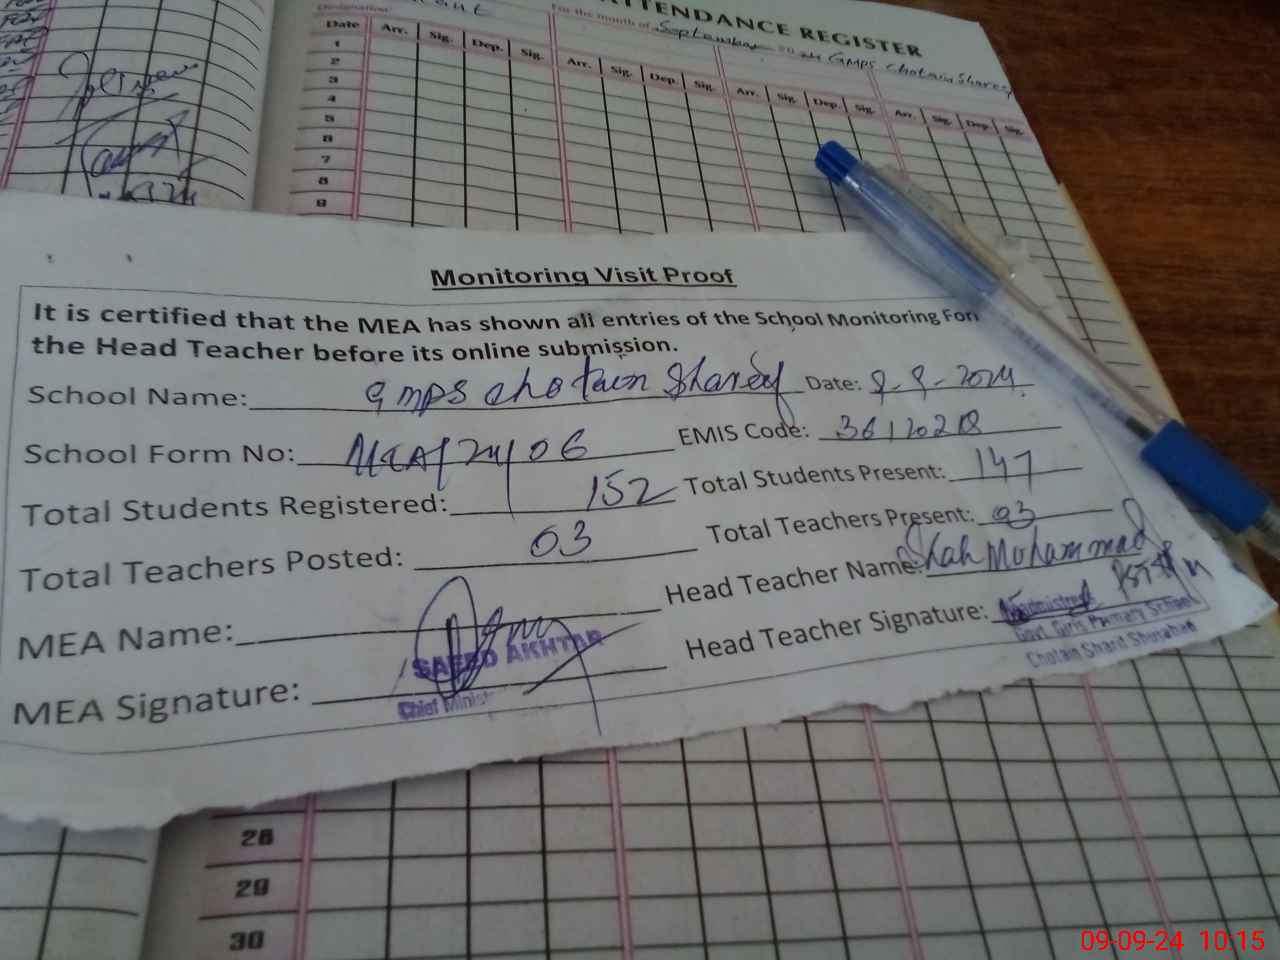 ATTENDANCE REGISTER
Designation
For the month of September 20 GMPS Chotain Sharey
Date Arr. Sig. Dep. Sig. Arr. Sig. Dep. Sig. Arr. Sig. Dep. Sig. Arr. Sig. Dep. Sig.
1
2
3
4
5
6
7
8
9
Monitoring Visit Proof
It is certified that the MEA has shown all entries of the School Monitoring Form
the Head Teacher before its online submission.
School Name: GMPS Chotain Sharey Date: 9-9-2024
School Form No: MEA/24/06 EMIS Code: 36120218
Total Students Registered: 152 Total Students Present: 147
Total Teachers Posted: 03 Total Teachers Present: 03
MEA Name: Head Teacher Name: Shah Mohammad
MEA Signature: Head Teacher Signature:
SAEED AKHTAR
Chief Minist
Govt. Girls Primary School
Chotain Sharif Shujabad
28
29
30
09-09-24 10:15